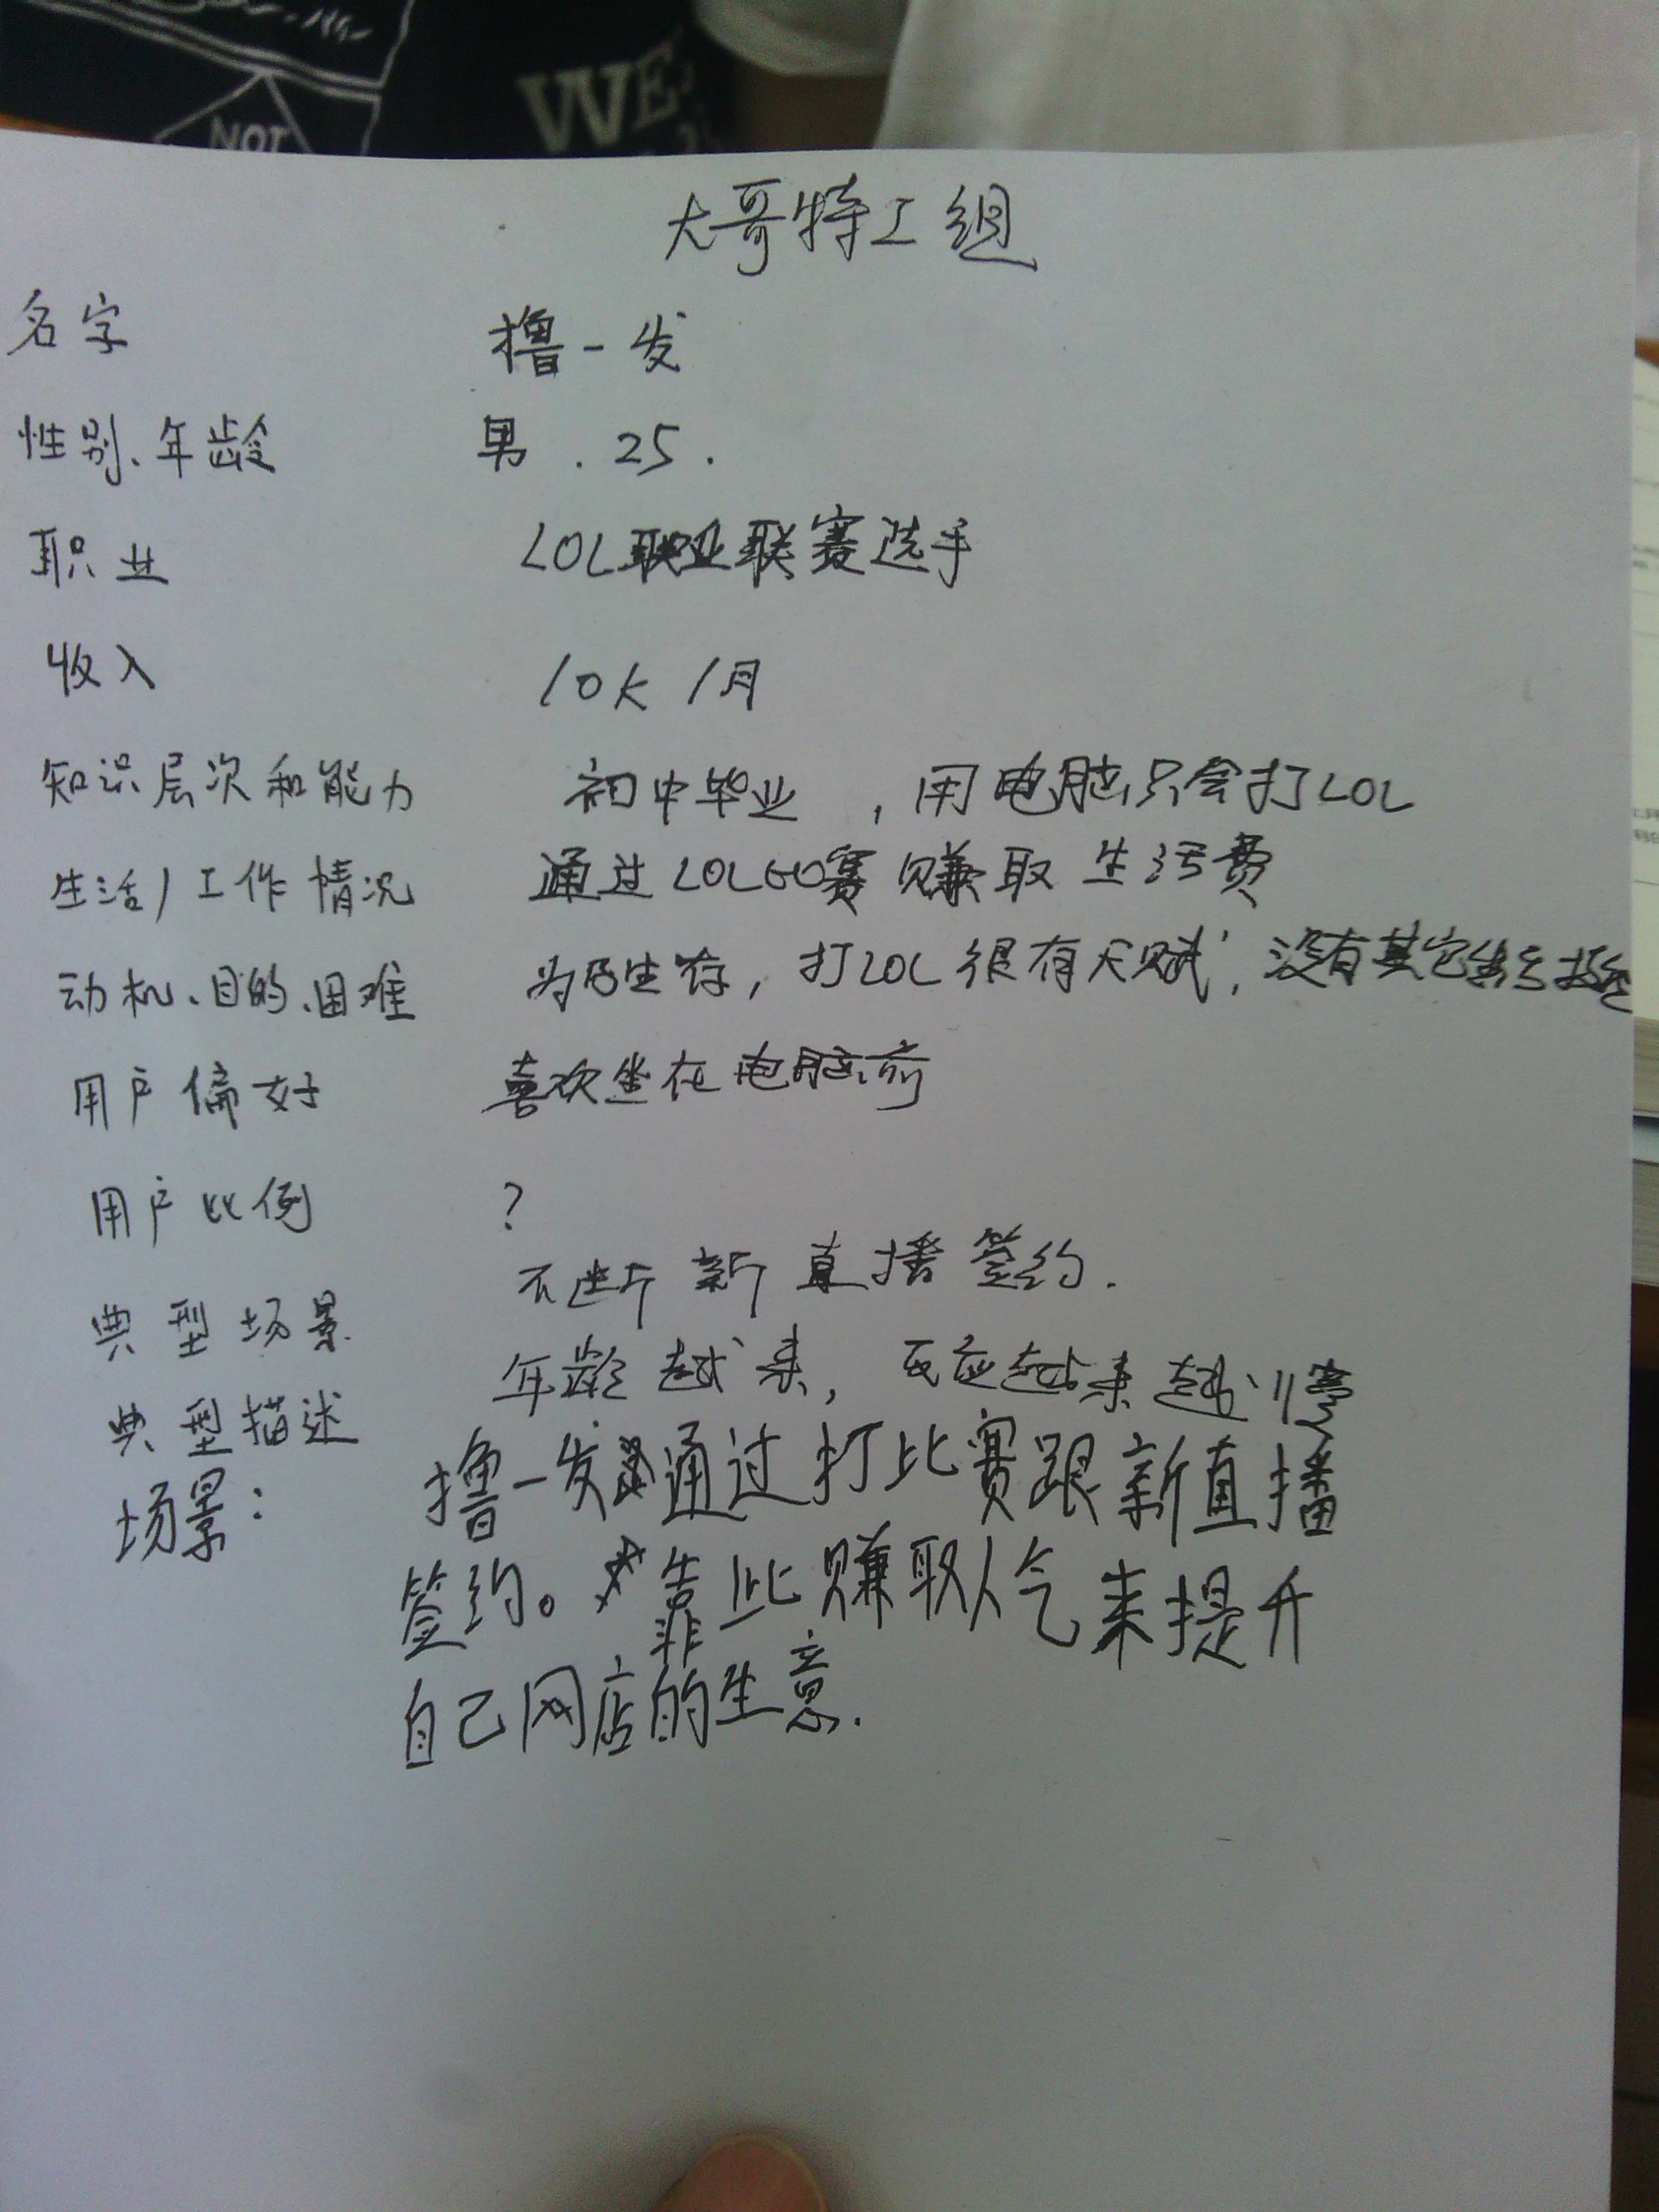 NOT
WE
大哥特工组
名字 撸一发
性别、年龄 男 . 25 .
职业 LOL职业联赛选手
收入 10k /月
知识层次和能力 初中毕业 , 用电脑只会打LOL
生活/工作情况 通过LOLGO赛赚取生活费
动机、目的、困难 为了生存, 打LOL很有天赋, 没有其它
用户偏好 喜欢坐在电脑前
用户比例 ?
典型场景 不断新直播签约.
典型描述 年龄越来, 反应越来越慢
场景: 撸一发通过打比赛跟新直播
签约。靠此赚取人气来提升
自己网店的生意.